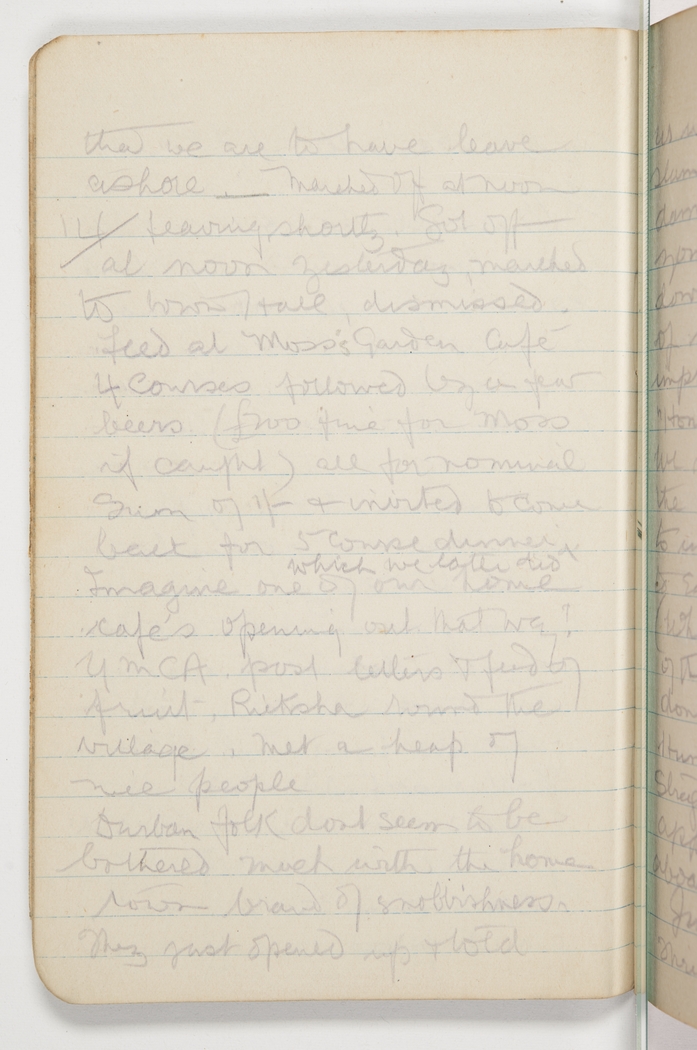 that we are to have leave
ashore — marched off at noon
14/ leaving shortly. Got off
at noon yesterday, marched
to town Hall, dismissed.
feed at Moss's Garden Café
4 Courses followed by a few
beers (£200 fine for Moss
if caught) all for nominal
Sum of 1/- & invited to come
back for 5 Course dinner x
which we later did x
Imagine one of our home
cafe's opening out that way!
YMCA. post letters & feed of
fruit, Ricksha round the
village. Met a heap of
nice people
Durban folk dont seem to be
bothered much with the home
town brand of snobbishness.
They just opened up & told